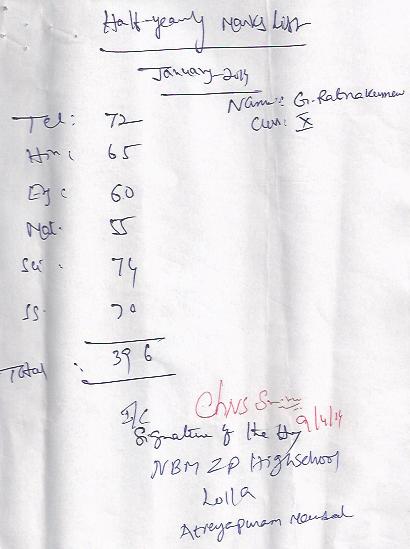 Half-yearly Marks List
January-2014
Name: G. Ratnakumar
Class: X
Tel: 72
Hin: 65
Eng: 60
Mat. 55
Sci: 74
SS. 70
Total: 396
I/C
9/4/14
Signature of the HM
NBM ZP Highschool
Lolla
Atreyapuram Mandal